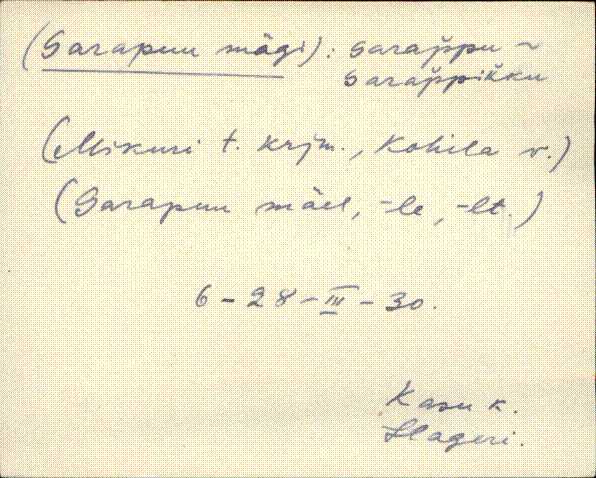 (Sarapuu mägi): sarap̆pu ~
sarap̆pik̆ku
(Mikuri t. krjm., Kohila v.)
(Sarapuu mäel, -le, -lt.)
6-28-III-30.
Kasu k.
Hageri.